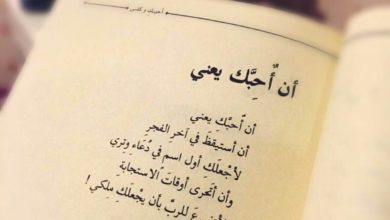 أحببتك وكفى
أن أُحِبَّك يعني
أن أُحبَّكِ يعني
أن أستيقظَ في آخرِ الفجرِ
لأجْعلَكِ أول اسم في دُعَاءِ وتري
وأن أتحرى أوقاتَ الاستجابةِ
للربِّ بأن يجْعلَكِ مِلكي !